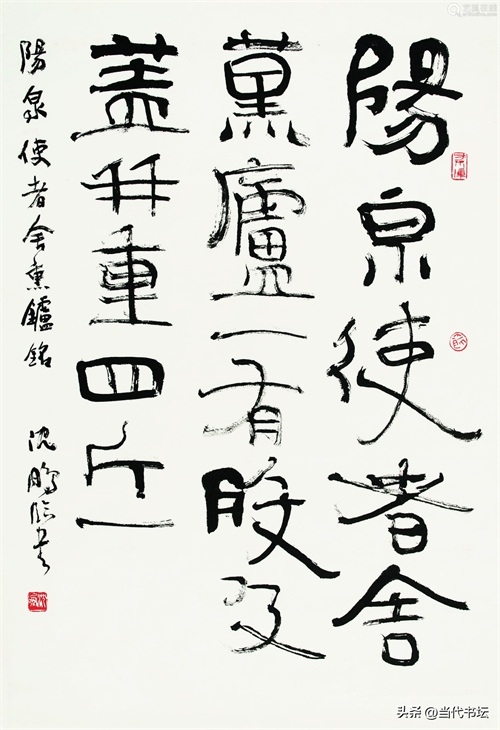 陽泉使者舍
熏廬一有般及
蓋并重四斤一
陽泉使者舍熏鑪銘
沈鵬臨
头条 @当代书坛